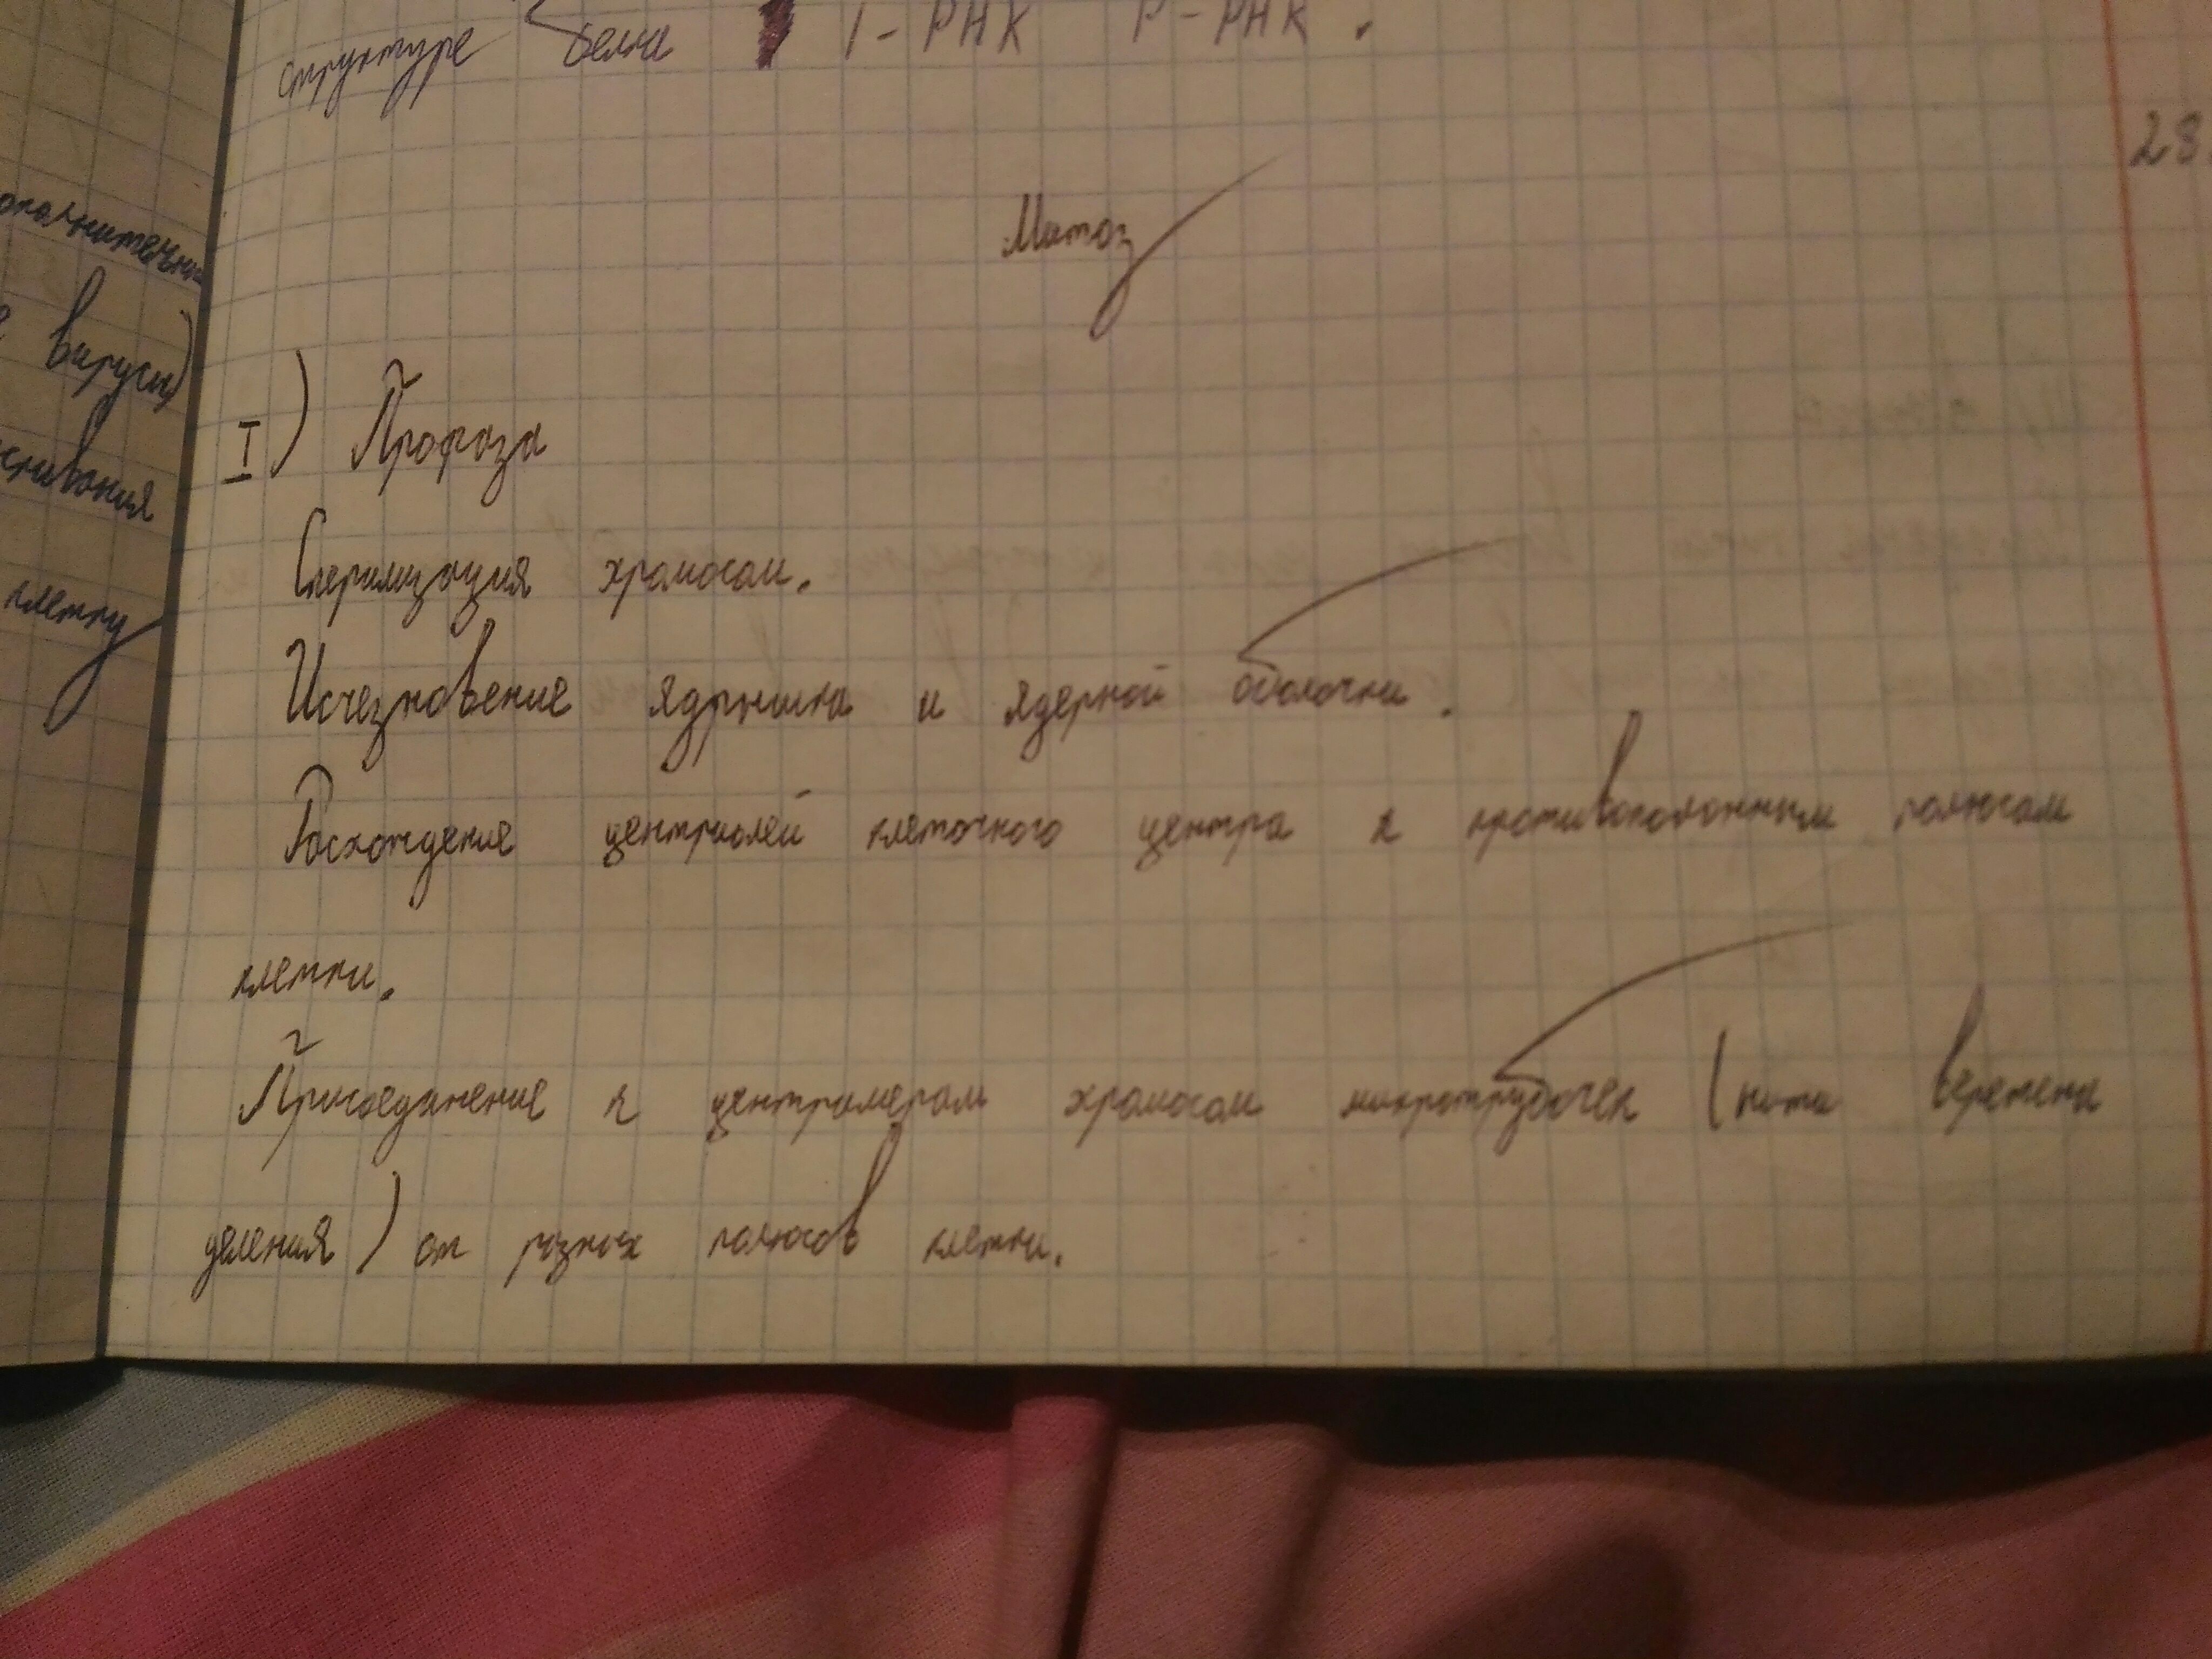 структуре белка т-РНК р-РНК.
28.
Митоз
I) Профаза
Спирализация хромосом.
Исчезновение ядрышка и ядерной оболочки.
Расхождение центриолей клеточного центра к противоположным полюсам
клетки.
Присоединение к центромерам хромосом микротрубочек (нити веретена
деления) от разных полюсов клетки.
вирусы)
клетку